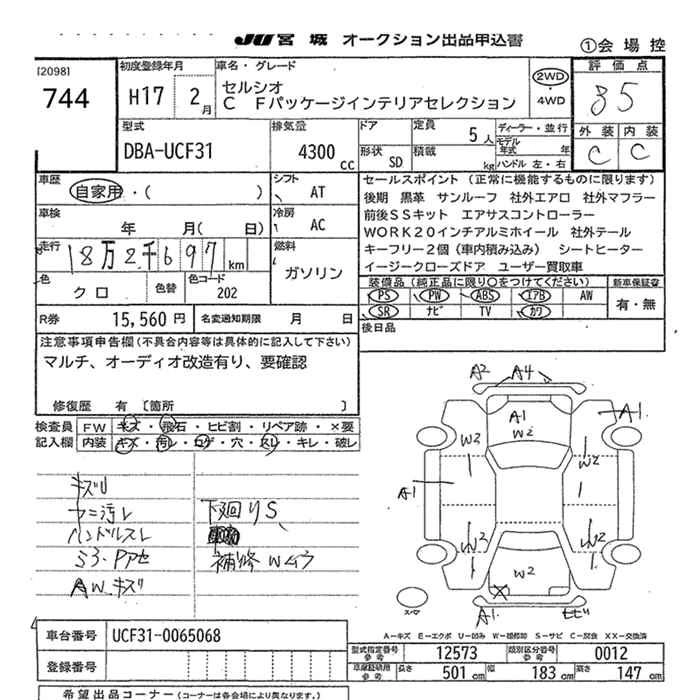 JU 宮城 オークション出品申込書
①会場控
[2098]
744
初度登録年月
H17 2月
車名・グレード
セルシオ
C Fパッケージインテリアセレクション
2WD
4WD
評価点
35
外装 内装
C C
型式
DBA-UCF31
排気量
4300 cc
ドア
形状 SD
定員 5人
積載 kg
ディーラー・並行
モデル年式 年
ハンドル 左・右
車歴
自家用・( )
シフト AT
車検
年 月( 日)
冷房 AC
走行
18万2千697 km
燃料
ガソリン
色
クロ
色替
色コード
202
R券 15,560円
名変通知期限 月 日
セールスポイント (正常に機能するものに限ります)
後期 黒革 サンルーフ 社外エアロ 社外マフラー
前後SSキット エアサスコントローラー
WORK20インチアルミホイール 社外テール
キーフリー2個(車内積み込み) シートヒーター
イージークローズドア ユーザー買取車
装備品(純正品に限り○をつけてください)
新車保証書
PS PW ABS エアB AW
SR ナビ TV カワ
有・無
後日品
注意事項申告欄(不具合内容等は具体的に記入して下さい)
マルチ、オーディオ改造有り、要確認
修復歴 有 〔箇所 〕
検査員記入欄
FW キズ・飛石・ヒビ割・リペア跡・×要
内装 キズ・汚レ・コゲ・穴・スレ・キレ・破レ
キズU
ウニ汚レ
ハンドルスレ
S3.Pアセ
AW.キズリ
下廻りS、
補修Wムラ
A2 A4
A1
W2
W2
A1.
W2
A1
W2
W2
W2
A1.
ヒビ
スペア
A-キズ E-エクボ U-凹み W-補修跡 S-サビ C-腐食 XX-交換済
車台番号 UCF31-0065068
登録番号
型式指定番号 参考 12573
類別区分番号 参考 0012
車庫証明用 参考 長さ 501cm 幅 183cm 高さ 147cm
希望出品コーナー(コーナーは各会場により異なります。)